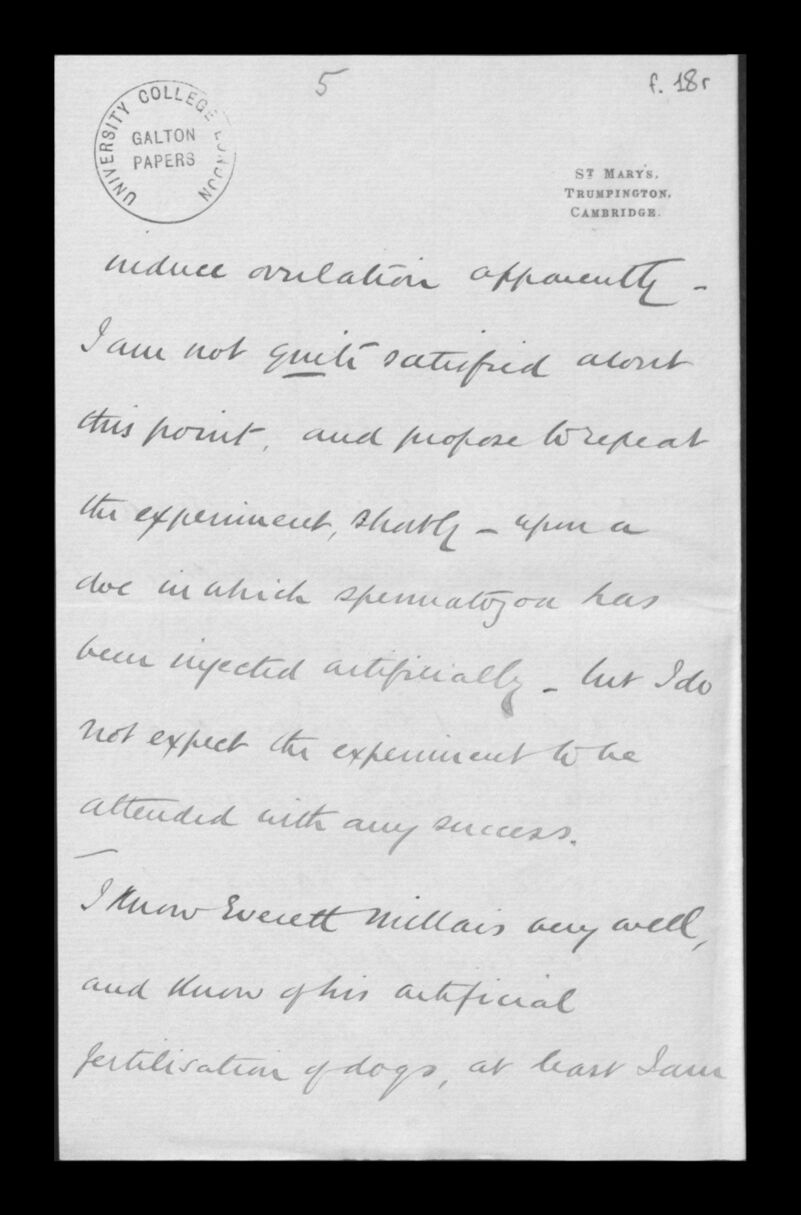 5
f. 18r
UNIVERSITY COLLEGE LONDON
GALTON
PAPERS
ST MARY'S,
TRUMPINGTON,
CAMBRIDGE.
induce ovulation apparently -
I am not quite satisfied about
this point, and propose to repeat
the experiment, shortly - upon a
doe in which spermatozoa has
been injected artificially - but I do
not expect the experiment to be
attended with any success.
I know Everett Millais very well,
and know of his artificial
fertilisation of dogs, at least I am